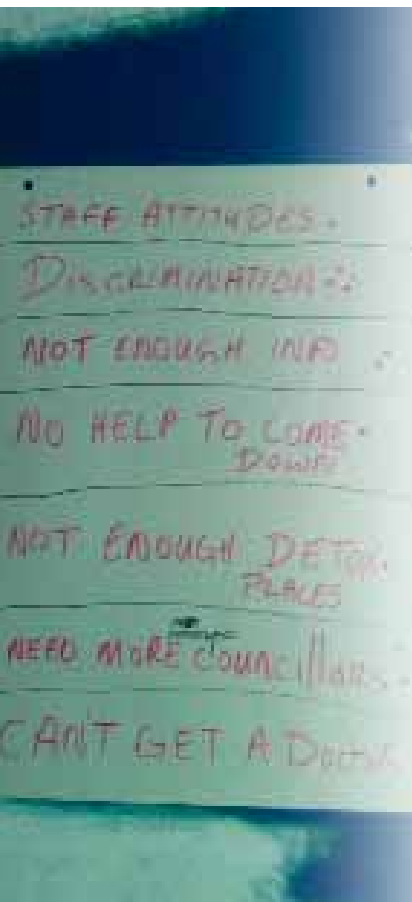 STAFF ATTITUDES.
DISCRIMINATION
NOT ENOUGH INFO
NO HELP TO COME
DOWN
NOT ENOUGH DETOX
PLACES
NEED MORE COUNCILLORS
CAN'T GET A DOCTOR